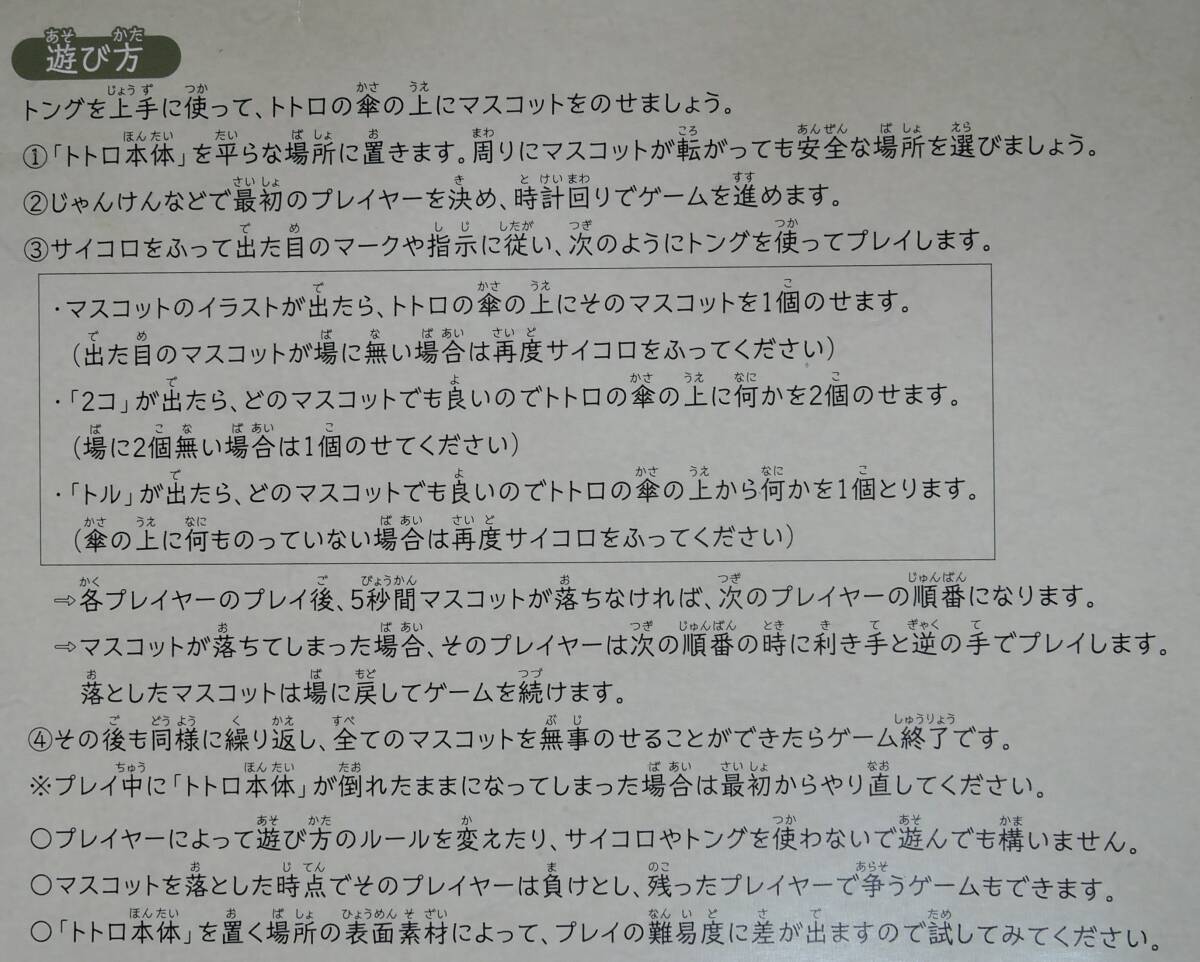 遊び方
トングを上手に使って、トトロの傘の上にマスコットをのせましょう。
①「トトロ本体」を平らな場所に置きます。周りにマスコットが転がっても安全な場所を選びましょう。
②じゃんけんなどで最初のプレイヤーを決め、時計回りでゲームを進めます。
③サイコロをふって出た目のマークや指示に従い、次のようにトングを使ってプレイします。
・マスコットのイラストが出たら、トトロの傘の上にそのマスコットを1個のせます。
（出た目のマスコットが場に無い場合は再度サイコロをふってください）
・「2コ」が出たら、どのマスコットでも良いのでトトロの傘の上に何かを2個のせます。
（場に2個無い場合は1個のせてください）
・「トル」が出たら、どのマスコットでも良いのでトトロの傘の上から何かを1個とります。
（傘の上に何ものっていない場合は再度サイコロをふってください）
⇨各プレイヤーのプレイ後、5秒間マスコットが落ちなければ、次のプレイヤーの順番になります。
⇨マスコットが落ちてしまった場合、そのプレイヤーは次の順番の時に利き手と逆の手でプレイします。
落としたマスコットは場に戻してゲームを続けます。
④その後も同様に繰り返し、全てのマスコットを無事のせることができたらゲーム終了です。
※プレイ中に「トトロ本体」が倒れたままになってしまった場合は最初からやり直してください。
○プレイヤーによって遊び方のルールを変えたり、サイコロやトングを使わないで遊んでも構いません。
○マスコットを落とした時点でそのプレイヤーは負けとし、残ったプレイヤーで争うゲームもできます。
○「トトロ本体」を置く場所の表面素材によって、プレイの難易度に差が出ますので試してみてください。